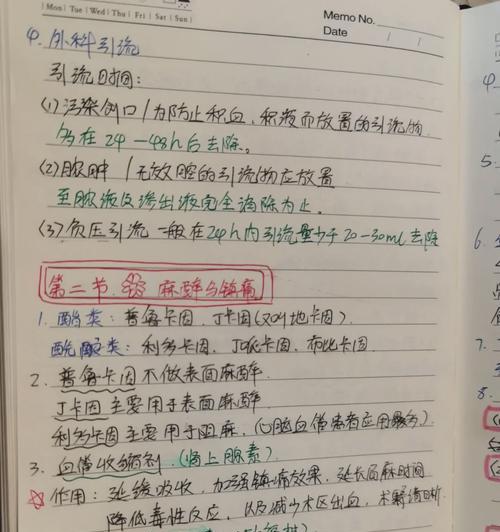 Mon | Tue | Wed | Thu | Fri | Sat | Sun
Memo No.
Date / /
4. 外科引流
引流时间:
(1) 污染伤口/为防止积血、积液而放置的引流物
多在24-48h后去除。
(2) 脓肿/无效腔的引流物应放置
至脓液及渗出液完全消除为止。
(3) 负压引流 一般在24h内引流量少于20-30ml去除
第二节 麻醉与镇痛
1. 酯类: 普鲁卡因、丁卡因(又叫地卡因).
酰胺类: 利多卡因、丁哌卡因、布比卡因
2. 普鲁卡因不做表面麻醉.
丁卡因主要用于表面麻醉
利多卡因主要用于阻麻. (心脑血管患者应用最多).
3. 血管收缩剂. (肾上腺素)
作用: 延缓吸收, 加强镇痛效果, 延长局麻时间
降低毒性反应, 以及减少术区出血, 术野清晰.
4
5.
6
7.
8.